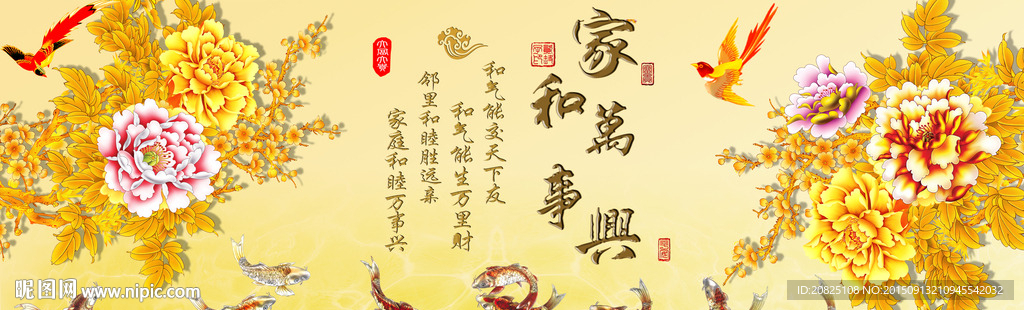 家和萬事興
和气能交天下友
和气能生万里财
邻里和睦胜远亲
家庭和睦万事兴
昵图网 www.nipic.com
ID:20825108 NO:20150913210945542032